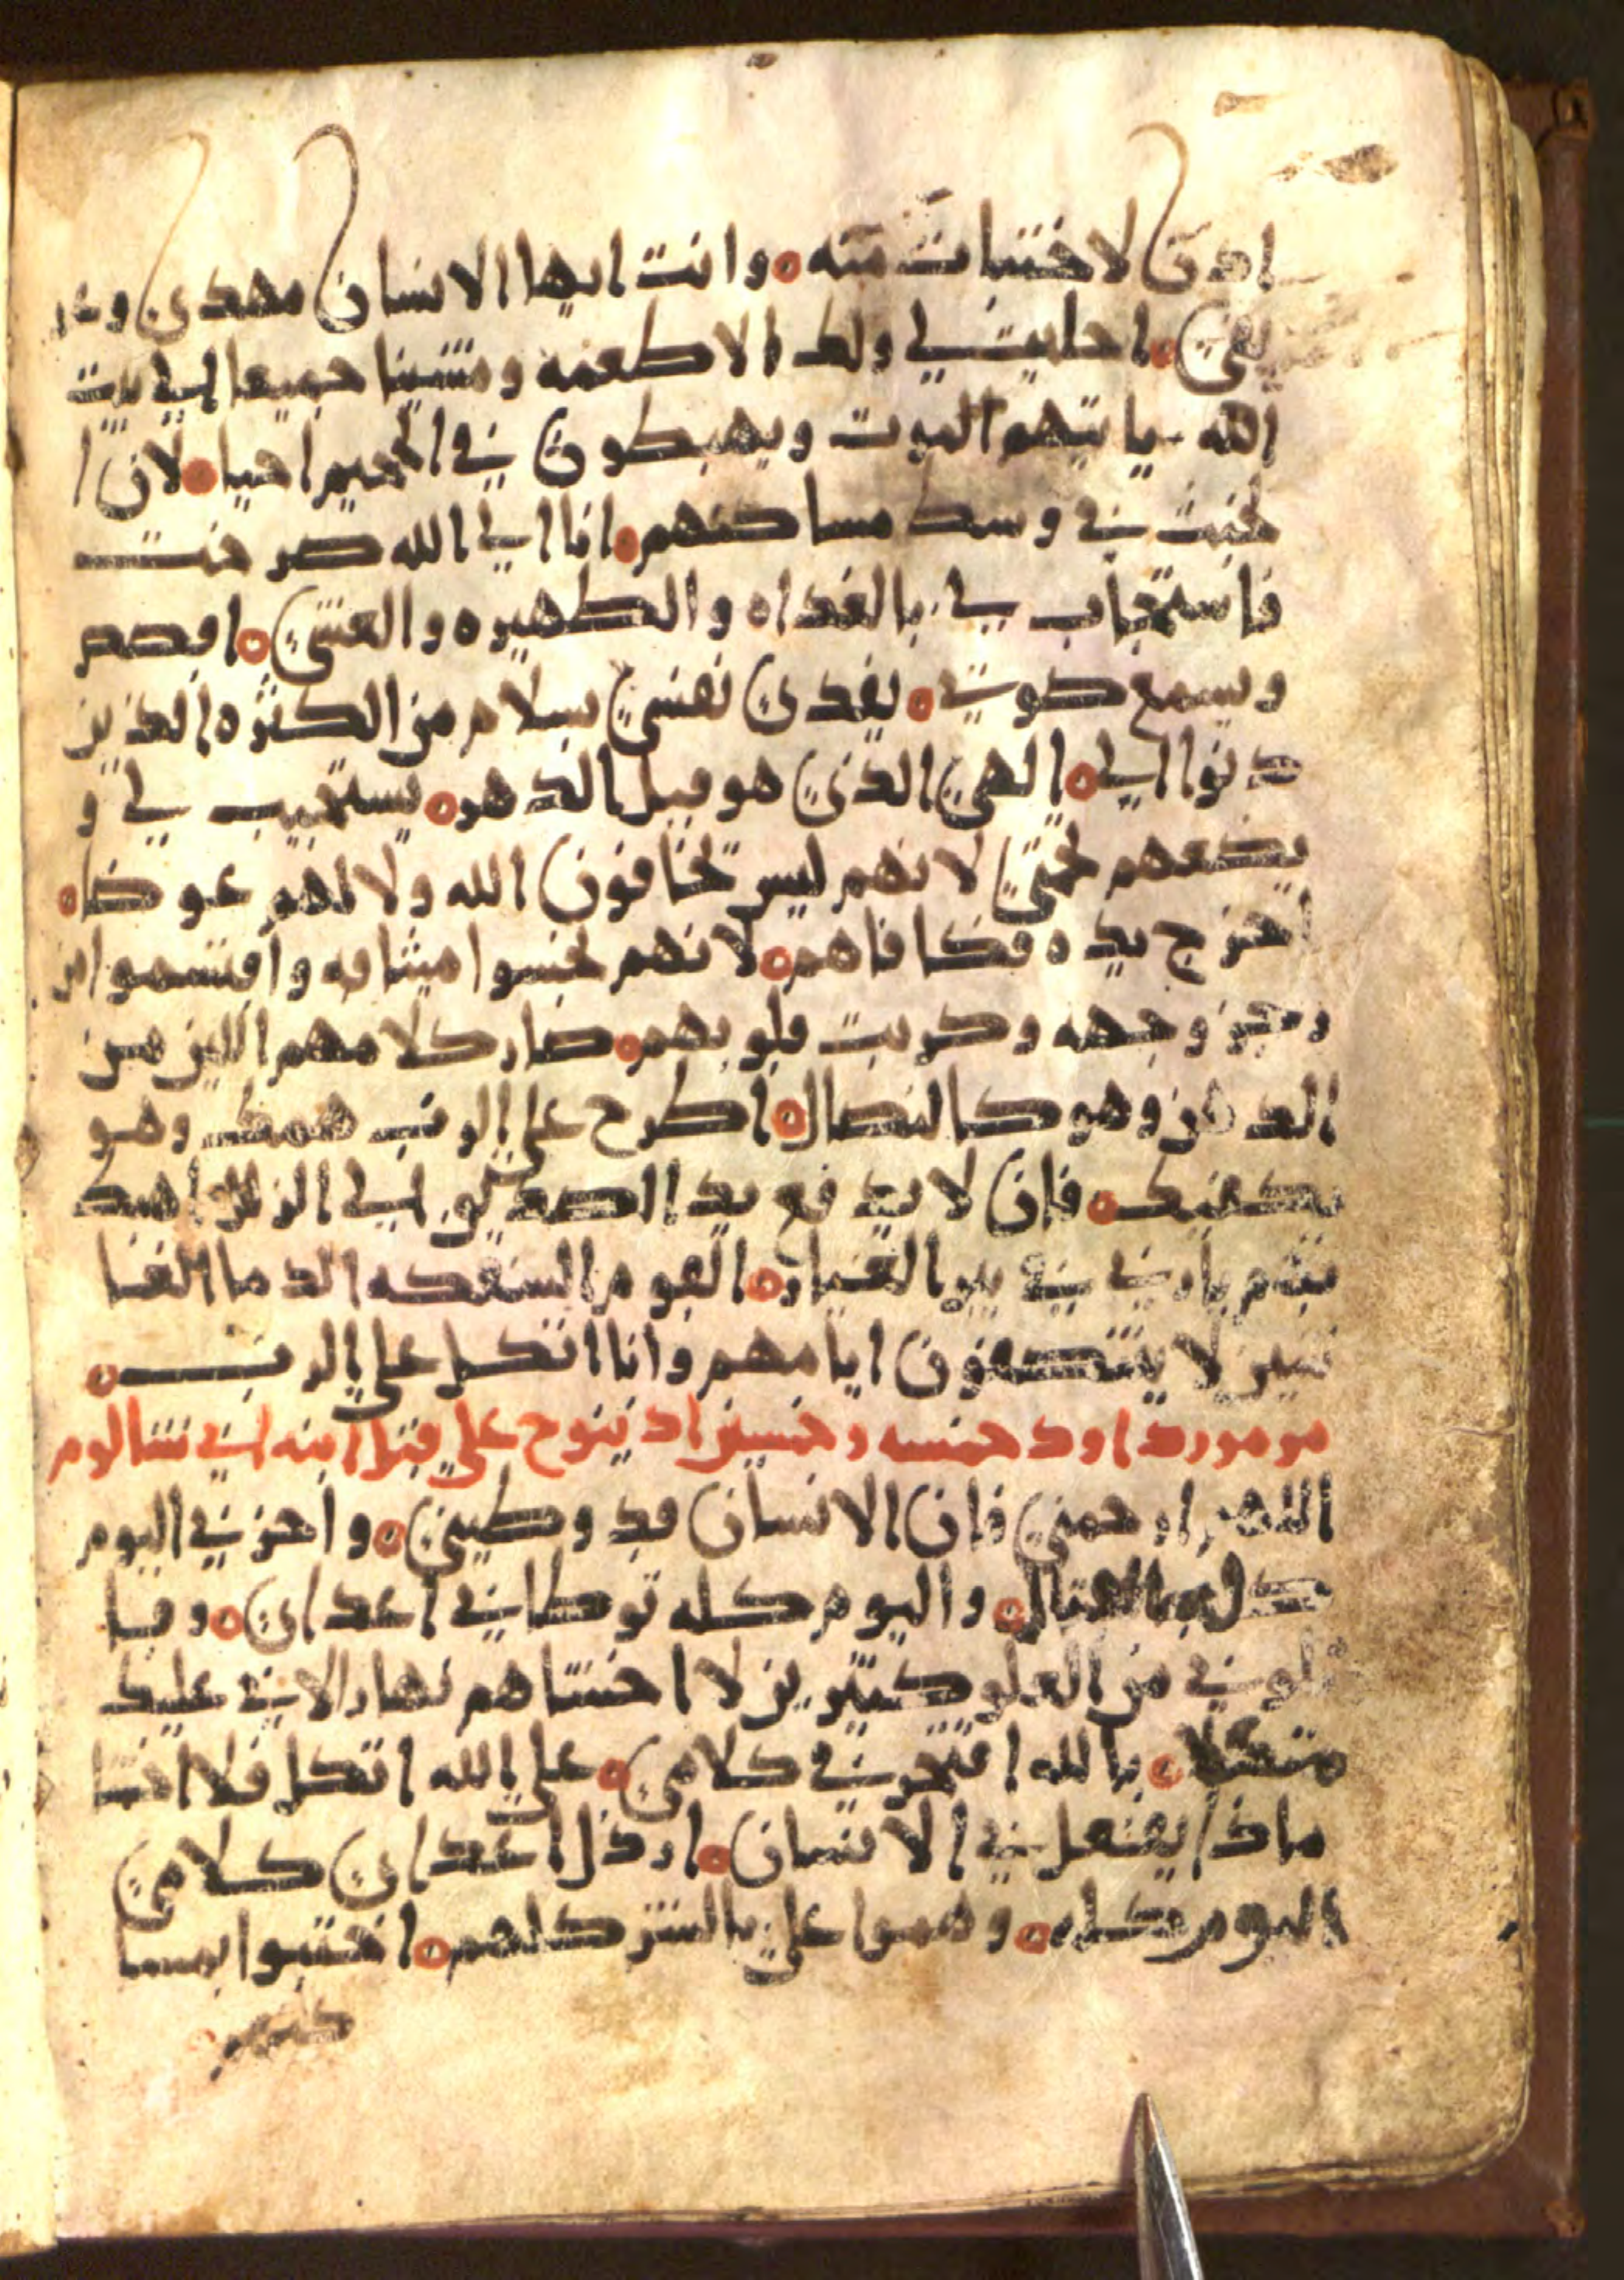 اذن لاختبات منه ۝ وانت ايها الانسان مهدي وعر
يفي ۝ احليت لي ولك الاطعمه ومشينا جميعا الي بيت
الله ياتيهم الموت ويهبطون في الجحيم احيا ۝ لان ا
لخبث في وسط مساكنهم ۝ انا الي الله صرخت
فاستجاب لي بالغداه والظهيره والعشي ۝ اقصص
ويسمع صوتي ۝ يفدي نفسي بسلام من الكثره الذين
دنوا الي ۝ الهي الذي هو قبل الدهر ۝ يستجيب لي و
يضعهم تحتي لانهم ليس يخافون الله ولا لهم عوضا ۝
اخرج يده فكافاهم ۝ لانهم نجسوا ميثاقه واقتسموا من
رجز وجهه وكربت قلوبهم ۝ صار كلامهم الين من
الدهن وهو كالنصال ۝ اطرح علي الرب همك وهو
يكفيك ۝ فان لا يدفع يدا الصديق الي الزلل اهبط
بهم يارب في بير الفساد ۝ القوم السفكه الدما الغا
شين لا ينتصفون ايامهم وانا اتكل علي الرب ۝
مزمور داود خمسه وخمسين اذ ينوح علي قتل ابنه ابي شالوم
اللهم ارحمني فان الانسان قد وطيني ۝ واحزني اليوم
كله بالقتال ۝ واليوم كله توطاني اعداي ۝ وقا
تلوني من العلو كثيرين لا اخشاهم نهارا لاني عليك
متكلا ۝ بالله افتخر في كلامي ۝ علي الله اتكل فلا اخشا
ماذا يفعل في الانسان ۝ ارذل اعداي كلامي
اليوم كله ۝ وهموا علي بالشر كلهم ۝ اختبوا بمسا
كنهم